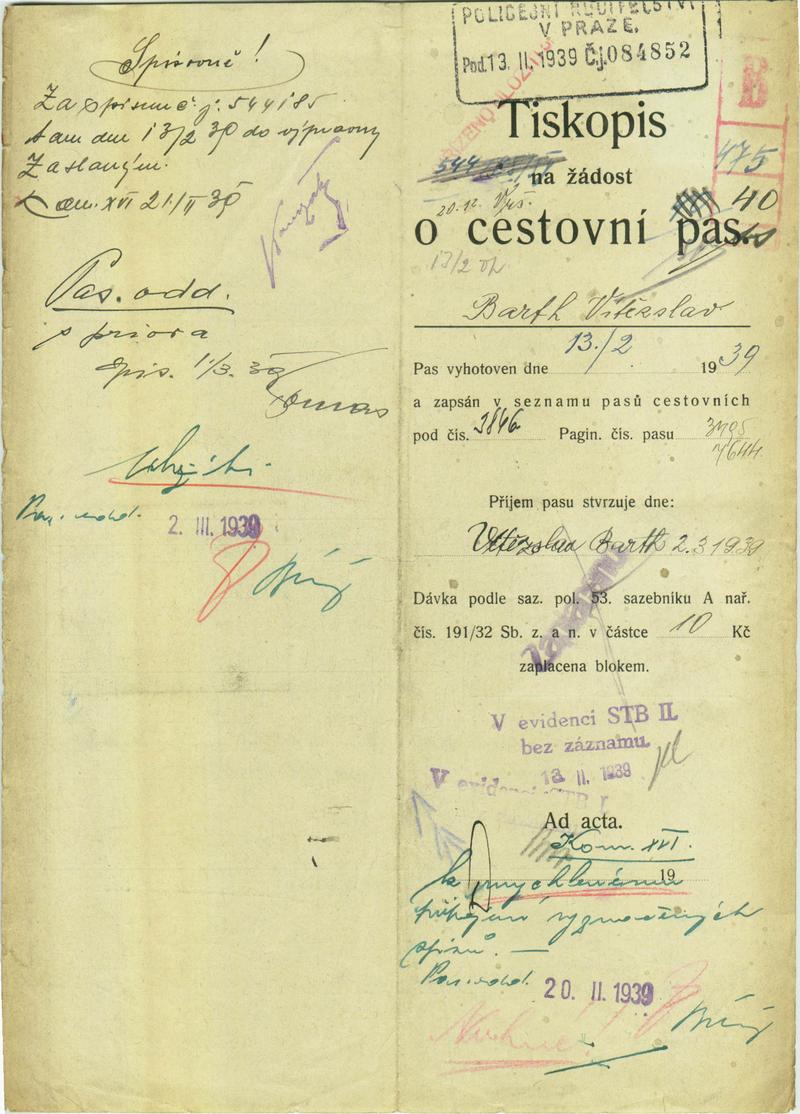 Spisovně!
Za spisem č. j. 544185
tam dne 13/2 39 do výpravny
Zaslaným.
Kom. XVI 21/II 39
Pas. odd.
s priora
1/3. 39
Pas. odd.
2. III. 1939
POLICEJNÍ ŘEDITELSTVÍ
V PRAZE.
Pod. 13. II. 1939 Čj. 084852
B
Tiskopis
475
na žádost
40
20.12.
o cestovní pas.
13/2
Barth Vítězslav
Pas vyhotoven dne 13./2 1939
a zapsán v seznamu pasů cestovních
pod čís. 3846 Pagin. čís. pasu
7644
Příjem pasu stvrzuje dne:
Vítězslav Barth 2.3.1939
Dávka podle saz. pol. 53. sazebníku A nař.
čís. 191/32 Sb. z. a n. v částce 10 Kč
zaplacena blokem.
V evidenci STB II.
bez záznamu.
13 II. 1939
V evidenci STB I.
Ad acta.
Kom. XVI.
19
k urychlenému
připojení vyznačených
spisů. —
Pas. odd.
20. II. 1939
Nutné!